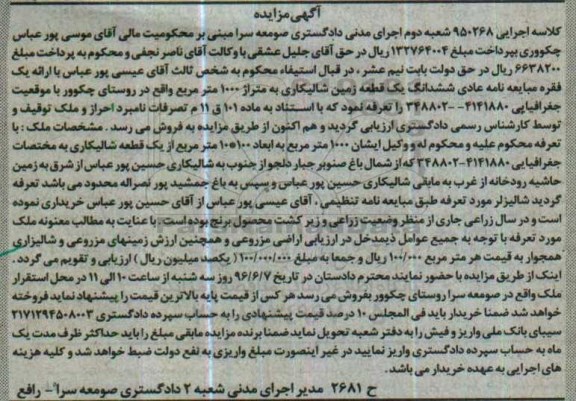 آگهی مزایده
کلاسه اجرایی ۹۵۰۲۶۸ شعبه دوم اجرای مدنی دادگستری صومعه سرا مبنی بر محکومیت مالی آقای موسی پور عباس
چکووری بپرداخت مبلغ ۱۳۲۷۶۴۰۰۴ ریال در حق آقای جلیل عشقی با وکالت آقای ناصر نجفی و محکوم به پرداخت مبلغ
۶۶۳۸۲۰۰ ریال در حق دولت بابت نیم عشر ، در قبال استیفاء محکوم به شخص ثالث آقای عیسی پور عباس با ارائه یک
فقره مبایعه نامه عادی ششدانگ یک قطعه زمین شالیکاری به متراژ ۱۰۰۰ متر مربع واقع در روستای چکوور با موقعیت
جغرافیایی ۴۱۴۱۸۸۰-۳۴۸۸۰۲ را تعرفه نمود که با استناد به ماده ۱۰۱ ق ا م تصرفات نامبرد احراز و ملک توقیف و
توسط کارشناس رسمی دادگستری ارزیابی گردید و هم اکنون از طریق مزایده به فروش می رسد . مشخصات ملک : با
تعرفه محکوم علیه و محکوم له و وکیل ایشان ۱۰۰۰ متر مربع به ابعاد ۱۰۰*۱۰ متر مربع از یک قطعه شالیکاری به مختصات
جغرافیایی ۴۱۴۱۸۸۰-۳۴۸۸۰۲ که از شمال باغ صنوبر جبار دلجو از جنوب به شالیکاری حسین پور عباس از شرق به زمین
حاشیه رودخانه از غرب به مابقی شالیکاری حسین پور عباس و سپس به باغ جمشید پور نصراله محدود می باشد تعرفه
گردید شالیزار مورد تعرفه طبق مبایعه نامه تنظیمی ، آقای عیسی پور عباس از آقای حسین پور عباس خریداری نموده
است و در سال زراعی جاری از منظر وضعیت زراعی و زیر کشت محصول برنج بوده است . با عنایت به مطالب معنونه ملک
مورد تعرفه با توجه به جمیع عوامل ذیمدخل در ارزیابی اراضی مزروعی و همچنین ارزش زمینهای مزروعی و شالیزاری
همجوار به قیمت هر متر مربع ۱۰۰/۰۰۰ ریال و جمعا به مبلغ ۱۰۰/۰۰۰/۰۰۰ ( یکصد میلیون ریال ) ارزیابی و تقویم می گردد .
اینک از طریق مزایده با حضور نماینده محترم دادستان در تاریخ ۹۶/۶/۷ روز سه شنبه از ساعت ۱۰ الی ۱۱ در محل استقرار
ملک واقع در صومعه سرا روستای چکوور بفروش می رسد هر کس از قیمت پایه بالاترین قیمت را پیشنهاد نماید فروخته
خواهد شد ضمنا خریدار باید فی المجلس ۱۰ درصد قیمت پیشنهادی را به حساب سپرده دادگستری ۲۱۷۱۲۹۴۵۰۸۰۰۳
سیبای بانک ملی واریز و فیش را به دفتر شعبه تحویل نماید ضمنا برنده مزایده مابقی مبلغ را باید حداکثر ظرف مدت یک
ماه به حساب سپرده دادگستری واریز نمایید در غیر اینصورت مبلغ واریزی به نفع دولت ضبط خواهد شد و کلیه هزینه
های اجرایی به عهده خریدار می باشد.
ح ۲۶۸۱ مدیر اجرای مدنی شعبه ۲ دادگستری صومعه سرا - رافع